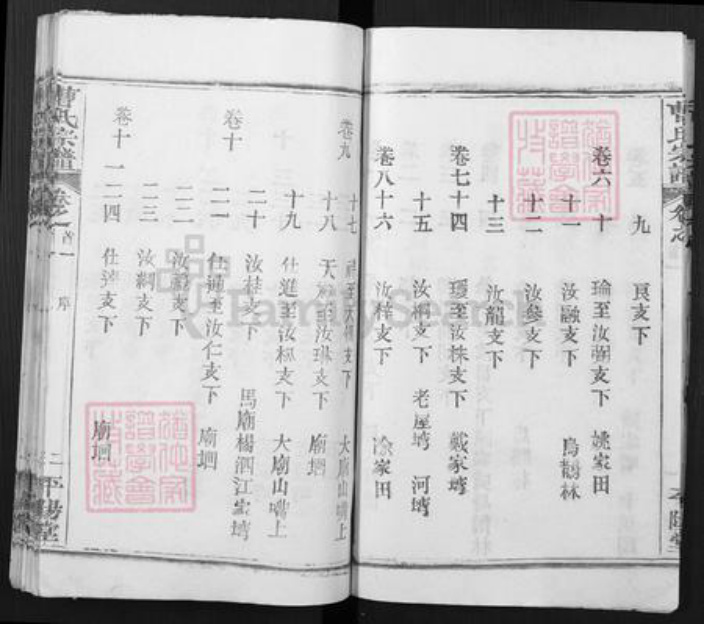 九　艮支下
卷六　十　瑜至汝弼支下　姚家田
十一　汝融支下　烏鶄林
十二　汝參支下
十三　汝龍支下
卷七　十四　瓊至汝株支下　戴家塆
十五　汝桐支下　老屋塆　河塆
卷八　十六　汝梓支下　涂家田
卷九　十七　支下　大廟山嘴上
十八　天　至汝琳支下　廟垇
十九　仕進至汝極支下　大廟山嘴上
卷十　二十　汝桂支下　馬廟楊泗江家塆
二一　仕通至汝仁支下　廟垇
二二　汝　支下
二三　汝綱支下
卷十一　二四　仕　支下　廟垇
曹氏宗譜　卷之首一　序　二　平陽堂
FamilySearch